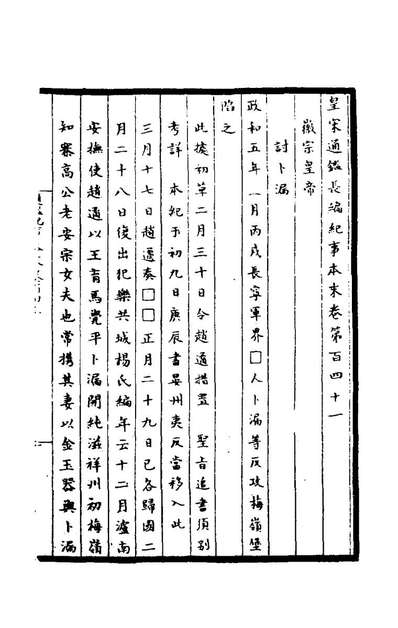 皇宋通鑑長編紀事本末卷第百四十一
徽宗皇帝
討卜漏
政和五年一月丙戌長寧軍界□人卜漏等反攻梅嶺堡
陷之
此據初草二月三十日令趙遹措置 聖旨追書須別
考詳 本紀于初九日庚辰書晏州夷反當移入此
三月十七日趙遹奏□□正月二十九日已各歸國二
月二十八日復出犯樂共城楊氏編年云十二月瀘南
安撫使趙遹以王育馬覺平卜漏開純滋祥州初梅嶺
知寨高公老妻宗女夫也常携其妻以金玉器與卜漏